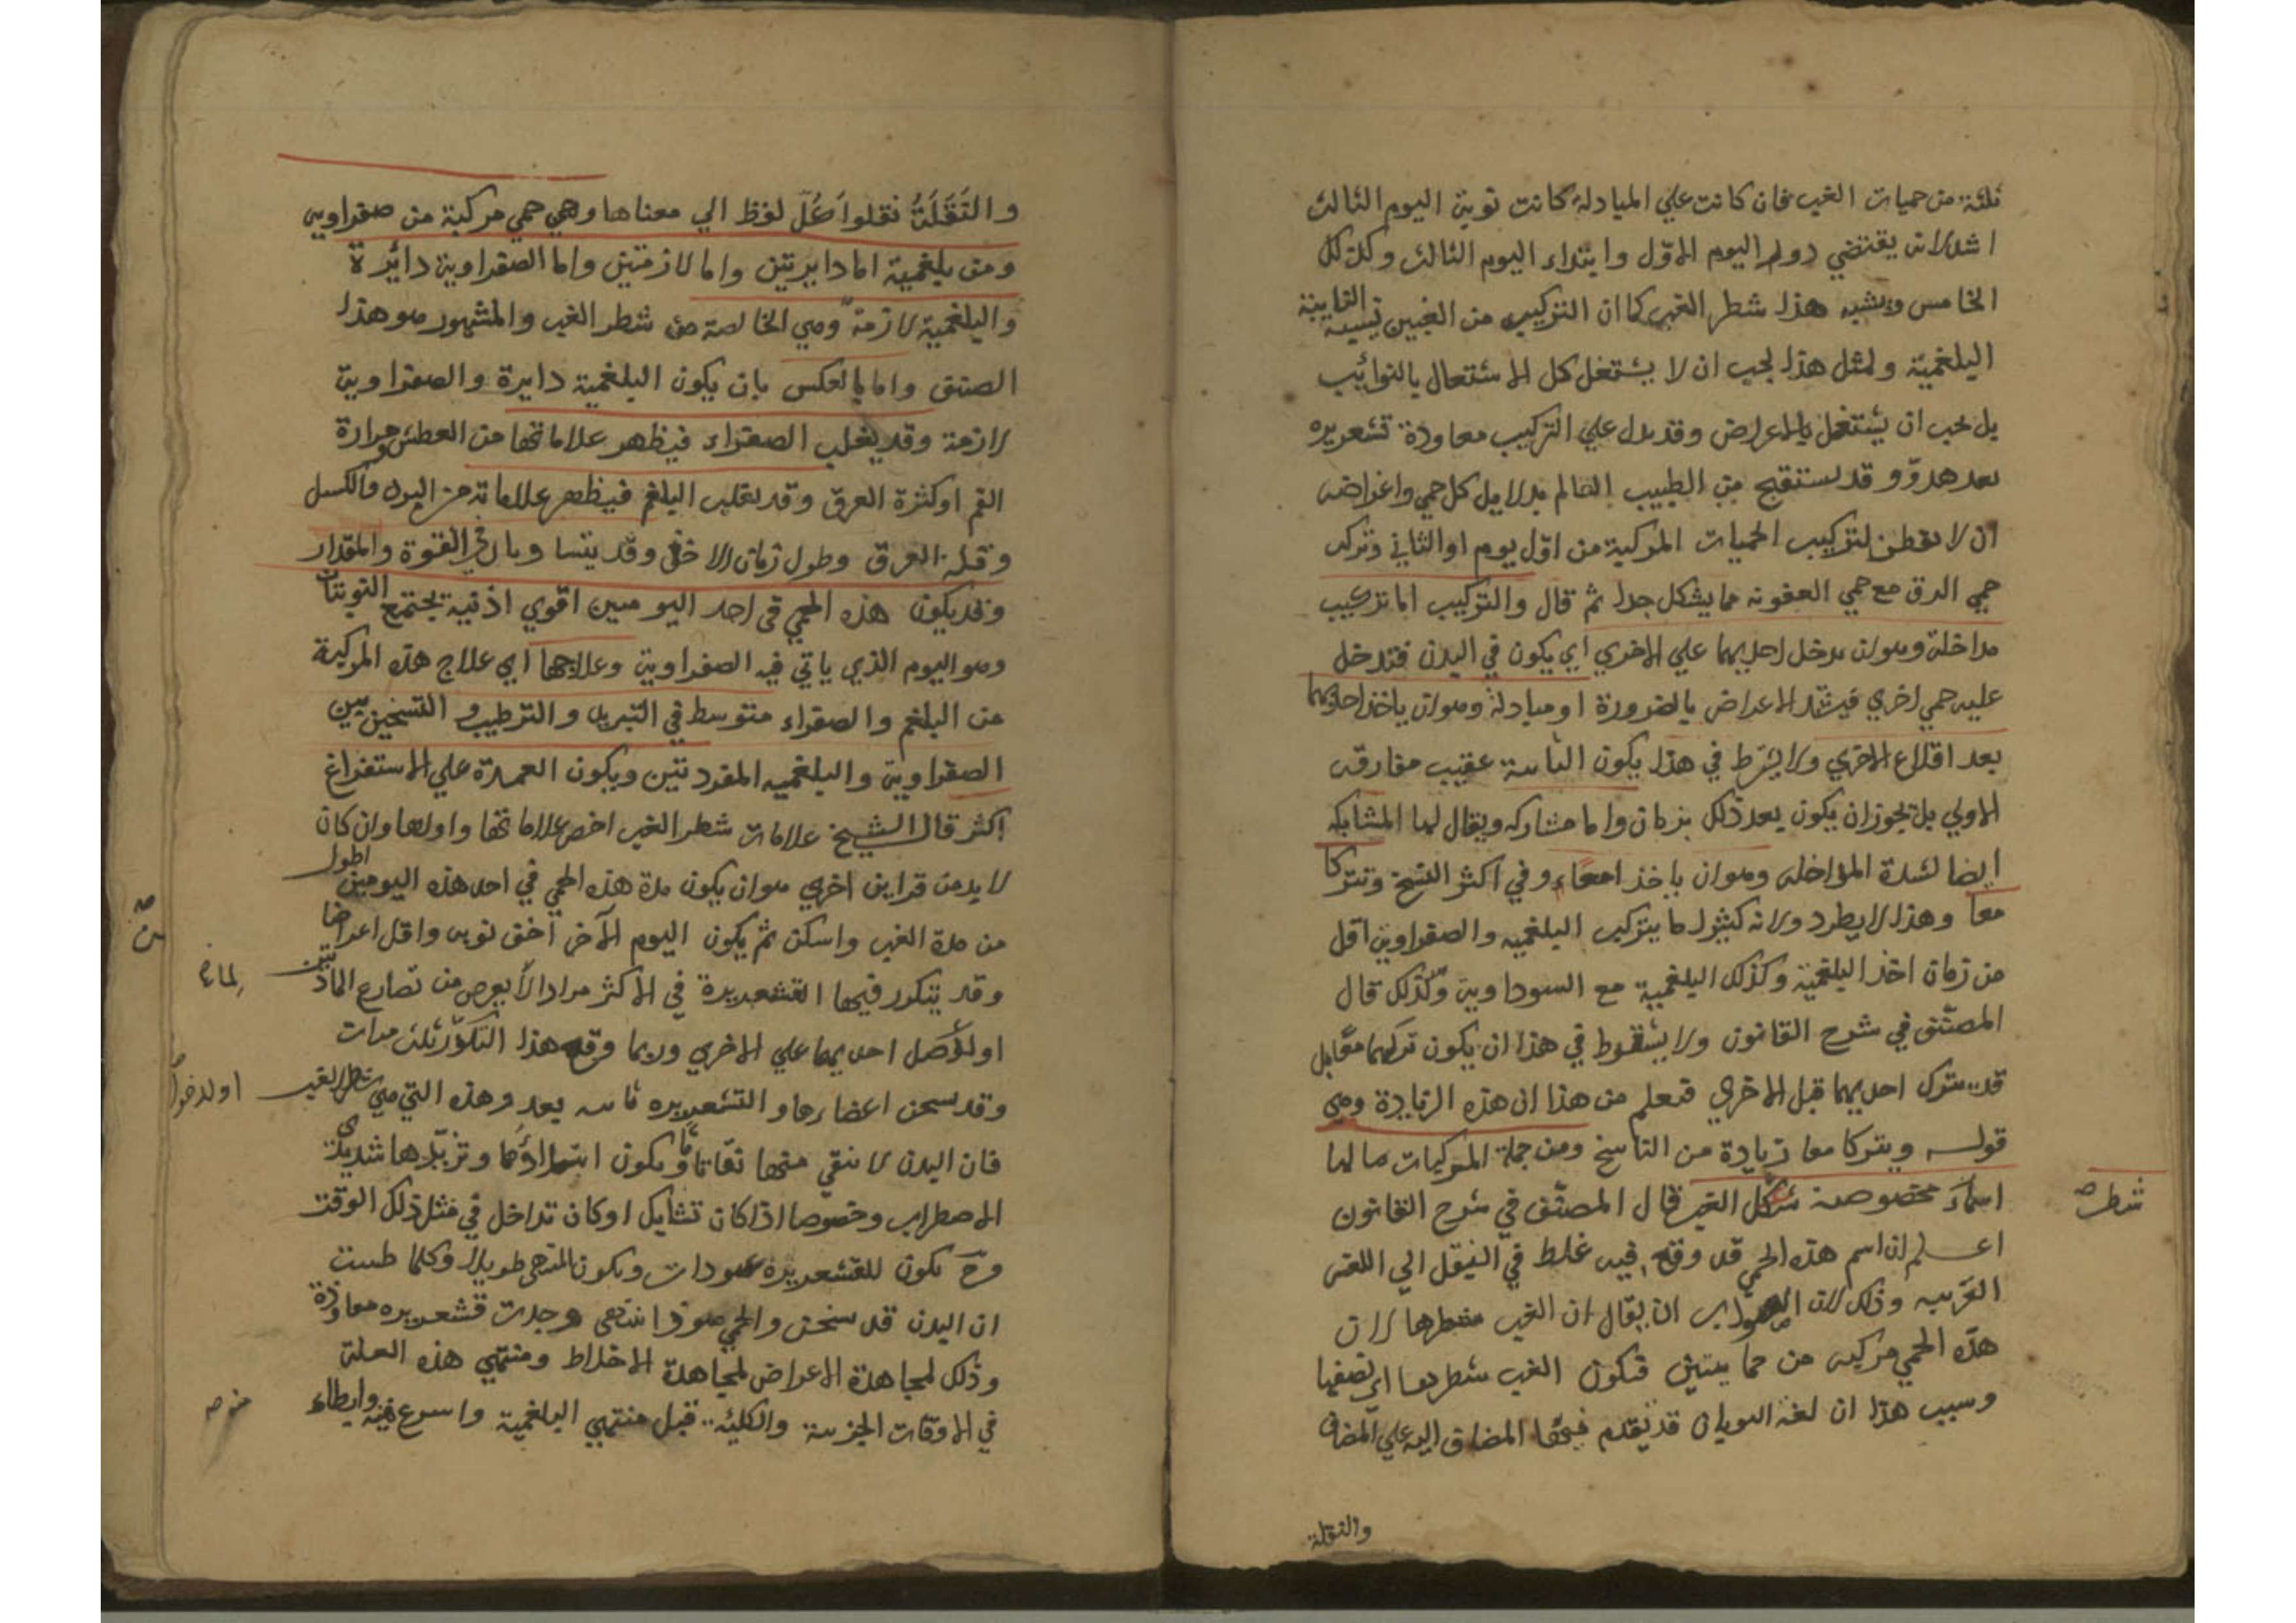 ثلثة من حميات الغب فان كانت علي المبادلة كانت نوبة اليوم الثالث
اشد لانه يقتضي دوام اليوم الاوّل وابتداء اليوم الثالث وكذلك كل
الخامس ويشبه هذا شطر الغب كما ان التركيب من الغبين تشبه النايبة
البلغمية ولمثل هذا يجب ان لا يشتغل كل الاشتعال بالنوائب
بل يجب ان يشتغل بالاعراض وقد يدل علي التركيب معاودة قشعريره
بعد هدوّ وقد يستقبح من الطبيب العالم بدلايل كل حمي واعراضه
ان لا يفطن لتركيب الحميات المركبة من اوّل يوم او الثاني وتركب
حمي الدق مع حمي العفونه مما يشكل جدا ثم قال والتركيب اما تركيب
مداخلة وهو ان يدخل احديهما علي الاخري اي يكون في البدن فتدخل
عليه حمي اخري فيشتد الاعراض بالضرورة او مبادلة وهو ان ياخذ احديهما
بعد اقلاع الاخري ولا يشترط في هذا يكون الثانية عقيب مفارقة
الاولي بل يجوز ان يكون بعد ذلك بزمان واما مشاركه ويقال لها المشابكه
ايضا لشدة المؤاخلة وهو ان ياخذا معًا وفي اكثر النسخ وتتركا
معا وهذا لا يطرد ولانه كثيرا ما يتركب البلغميه والصفراوية اقل
من زمان اخذ البلغمية وكذلك البلغمية مع السوداوية وكذلك قال
المصنّف في شرح القانون ولا يشترط في هذا ان يكون تركهما معًا بل
قد يترك احديهما قبل الاخري فتعلم من هذا ان هذه الزيادة وهي
قوله ويتركا معا زيادة من الناسخ ومن جملة المركبات ما لها
اسماء مخصوصة شكل الغب قال المصنّف في شرح القانون
شطر صه
اعلم ان اسم هذه الحمي قد وقع فيه غلط في النقل الي اللغة
العربيه وذلك لان الصواب ان يقال ان الغب شطرها لان
هذه الحمي مركبه من حمايتين فتكون الغب شطرها اي نصفها
وسبب هذا ان لغة اليونان قد يقدم فيها المضاف اليه علي المضاف
والنقلة
والنَقَلَةُ نقلوا كُلّ لفظ الي معناها وهي حمي مركبة من صفراوية
ومن بلغمية اما دايرتين واما لازمتين واما الصفراوية دائرة
والبلغمية لازمة وهي الخالصة من شطر الغب والمشهور هو هذا
الصنف واما بالعكس بان يكون البلغمية دايرة والصفراوية
لازمة وقد يغلب الصفراء فيظهر علاماتها من العطش وحرارة
الفم او كثرة العرق وقد يغلب البلغم فيظهر علاماته من البرد والكسل
وقلة العرق وطول زمان الاخذ وقد يتساويان في القوة والمقدار
وقد يكون هذه الحمي في احد اليومين اقوي اذ فيه يجتمع النوبتان
وهو اليوم الذي ياتي فيه الصفراوية وعلاجها اي علاج هذه المركبة
من البلغم والصفراء متوسط في التبريد والترطيب والتسخين بين
الصفراوية والبلغميه المفردتين ويكون العمدة علي الاستفراغ
اكثر قال الشيخ علامات شطر الغب اخص علاماتها واولها وان كان
لا بد من قراين اخري هو ان يكون مدة هذه الحمي في احد هذه اليومين اطول
من مدة الغب واسكن ثم يكون اليوم الآخر اخف نوبة واقل اعراضا
وقد يتكرر فيها القشعريرة في الاكثر مرارا لا يعرض من تصارع المادتين
او لدخل احديهما علي الاخري وربما وقع هذا التكرّر ثلث مرات
او لدخول
وقد يسخن اعضاءها والقشعريره ثابته بعد وهذه التي هي شطر الغب
فان البدن لا ينقي منها نقاء تامًا ويكون ابتداؤها وتزيّدها شديدي
الاضطراب وخصوصا اذا كان تشابك او كان تداخل في مثل ذلك الوقت
وح يكون للقشعريرة عودات ويكون المنتهي طويلا وكلما ظننت
ان البدن قد سخن والحمي هو ذا انتهي وجدت قشعريره معاودة
وذلك لمجاهدة الاعراض لمجاهدة الاخلاط ومنتهي هذه العلة
في الاوقات الجزئية والكلية قبل منتهي البلغمية واسرع منه وابطاء